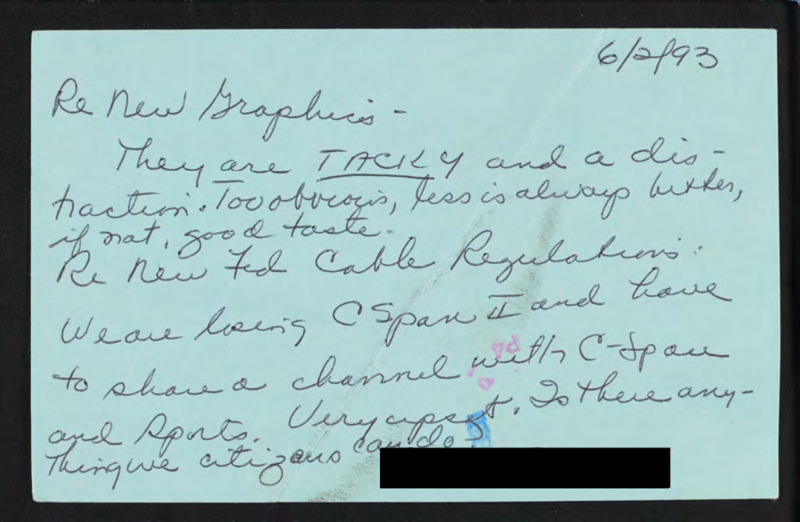 6/2/93
Re New Graphics -
They are TACKY and a dis-
traction. Too obvious, less is always better,
if not, good taste.
Re New Fed Cable Regulations:
We are losing CSpan II and have
to share a channel with C-Span
and Sports. Very upset. Is there any-
thing we citizens can do